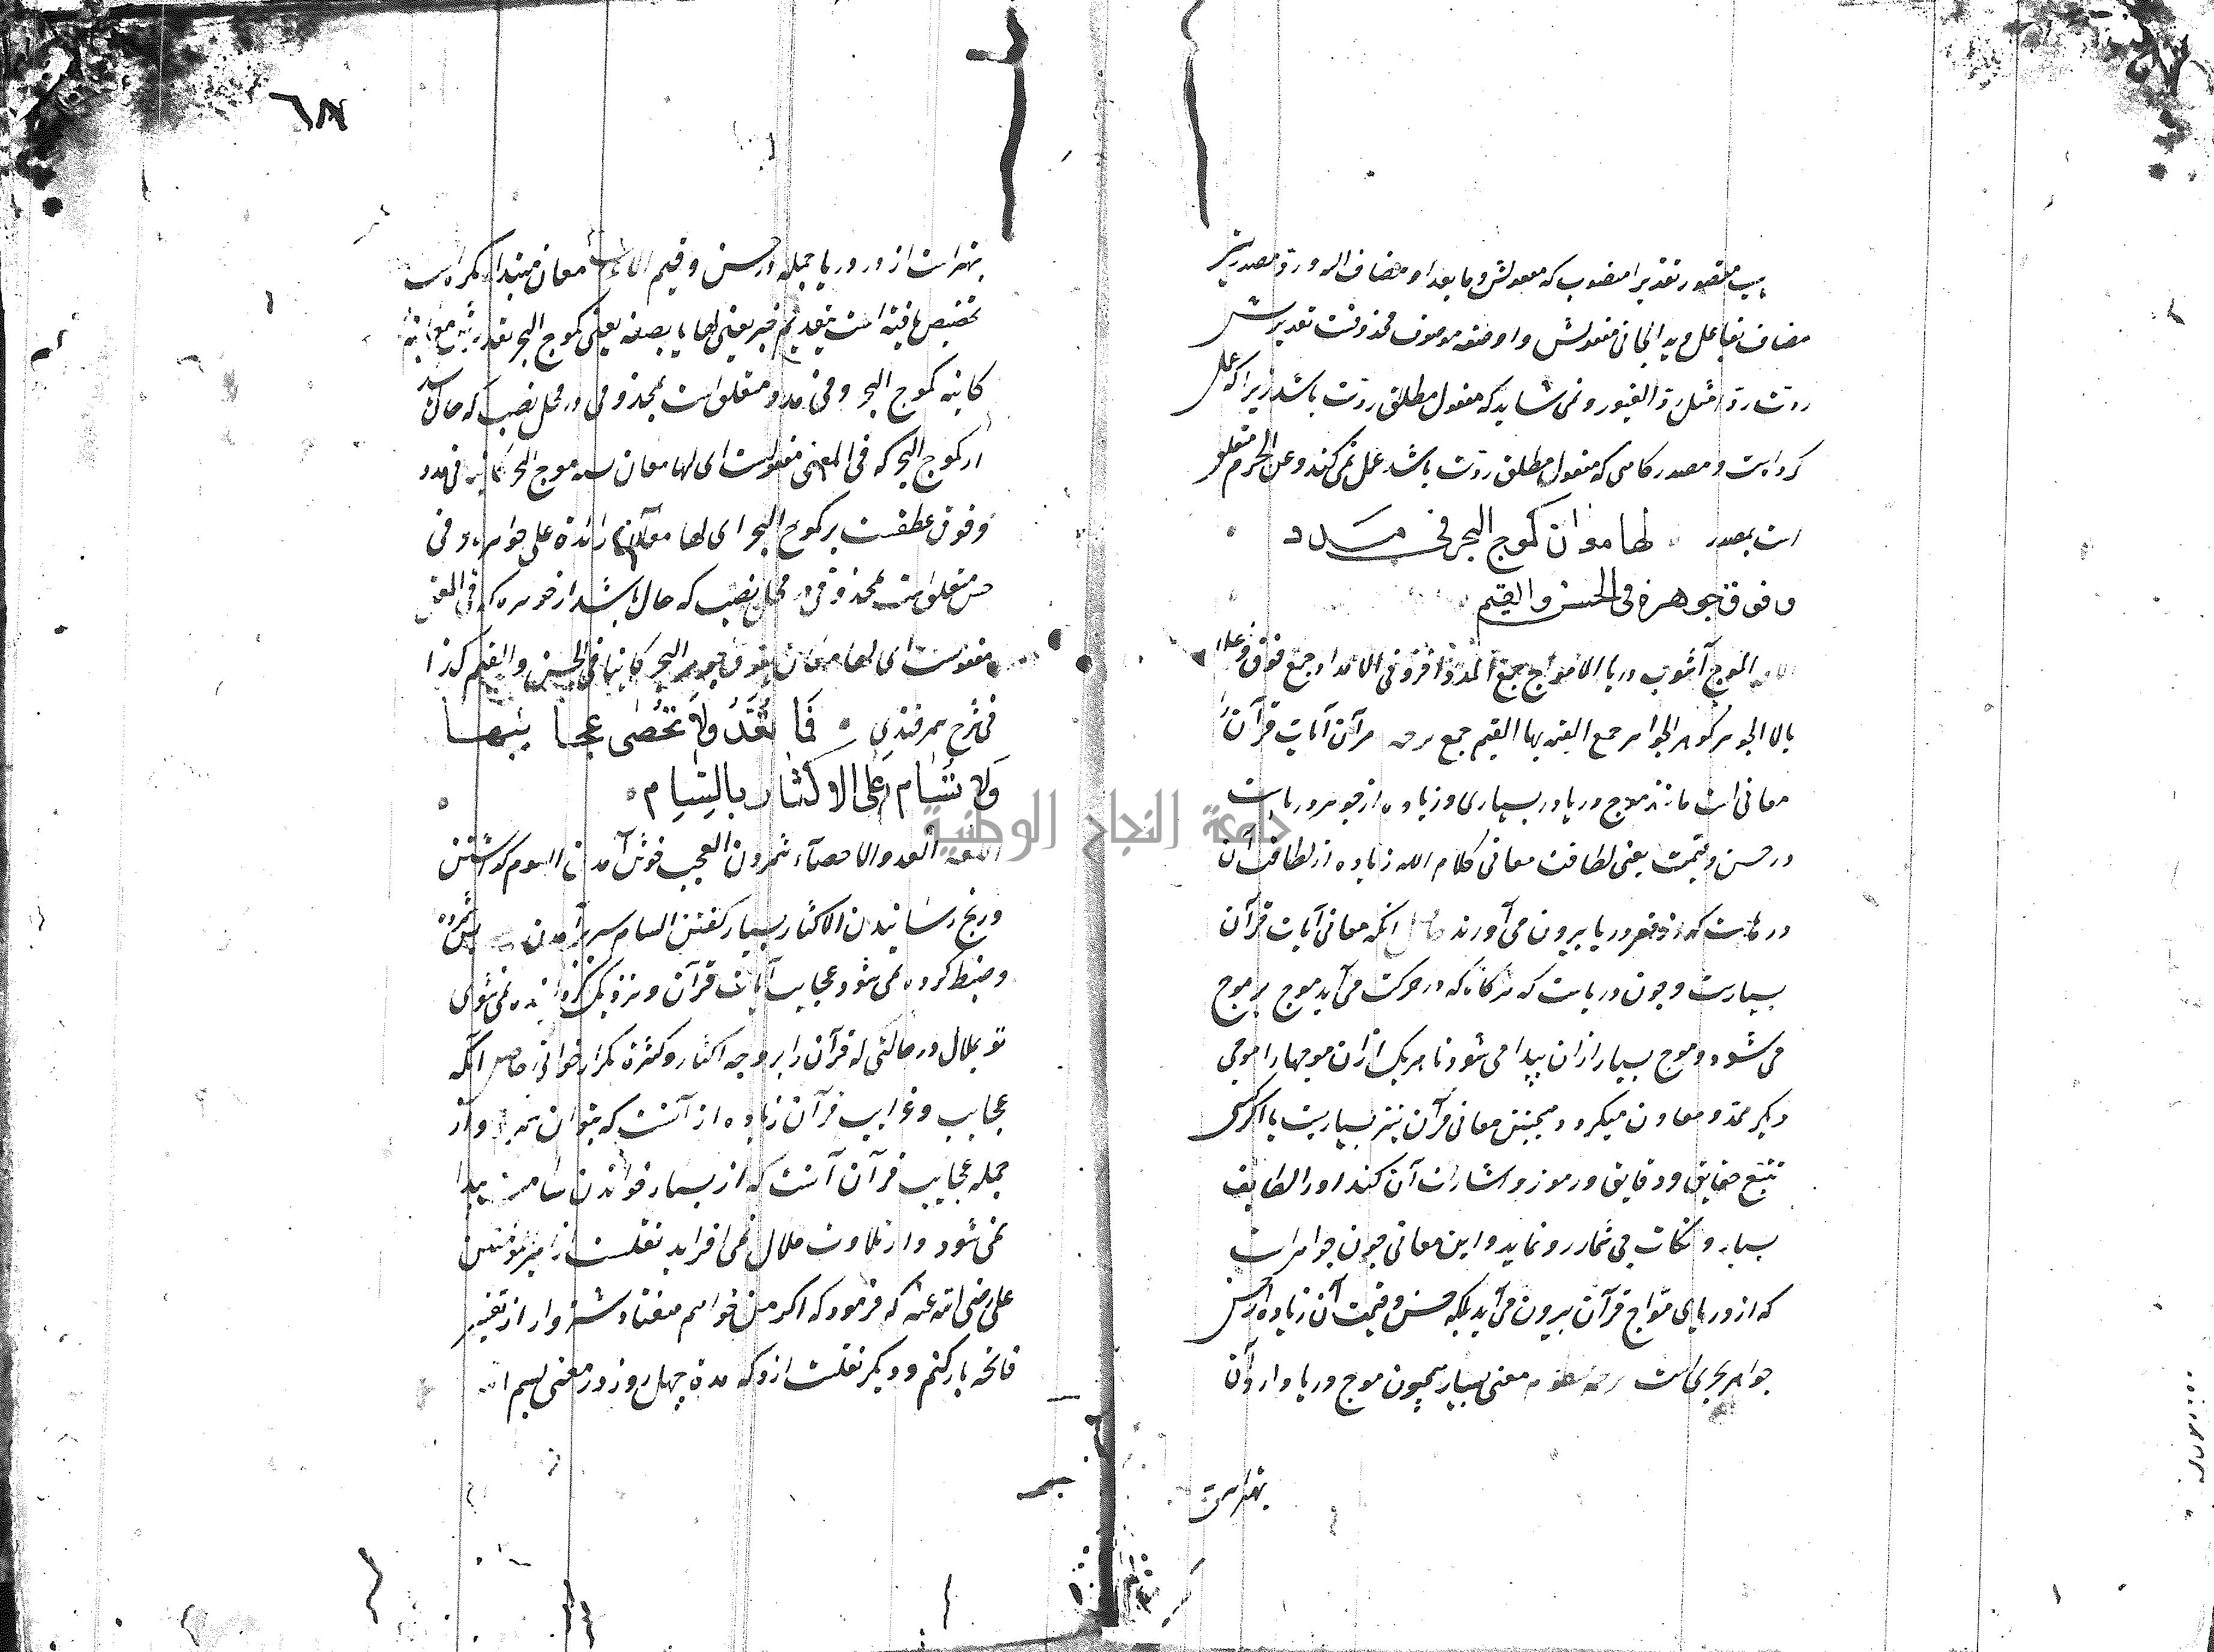 مضاف بفاعل و ید الجانی مفعولش و او صفه موصوف محذوفست تقدیرش
ردّت ردّا مثل ردّ الغیور و نمی شاید که مفعول مطلق ردّت باشد زیرا که عمل
کرده است و مصدر کامی که مفعول مطلق ردّت باشد عمل نمی کند و عن الحرم متعلق
است بمصدر لها معان کموج البحر فی مدد
و فوق جوهره فی الحسن والقیم
الموج آشوب دریا الامواج جمع المدد افزونی الامداد جمع فوق
بالا الجوهر گوهر الجواهر جمع القیمه بها القیم جمع مر آن آیات قرآن
معانی است مانند موج دریا در بسیاری و زیاده از جوهر دریاست
در حسن و قیمت یعنی لطافت معانی کلام الله زیاده از لطافت آن
درهاست که از قعر دریا بیرون می آورند حاصل انکه معانی آیات قرآن
بسیارست و چون دریاست که هرگاه که در حرکت می آید موج بر موج
می شود و موج بسیار ازان پیدا می شود تا هریک ازان موجها را موجی
دیگر ممد و معاون میکردد همچنین معانی قرآن نیز بسیارست با اگر کسی
تتبع حقایق و دقایق و رموز و اشارات آن کند او را لطایف
بسیار و نکات بی شمار رو نماید و این معانی چون جواهرست
که از دریای موّاج قرآن بیرون می آید بلکه حسن و قیمت آن زیاده از حسن
جواهر بحری است معنی بسیار همچون موج دریا دارد آن
بهترست
٦٨
بهترست از در دریا جمله در حسن و قیم معان مبتدا نکره است
تخصیص یافته است بتقدیم خبر یعنی لها یا بصفه یعنی کموج البحر تقدیرش
کاینه کموج البحر و فی مدد متعلق است بمحذوفی در محل نصب که حال باشد
از کموج البحر که فی المعنی مفعولست ای لها معان موج البحر کاینا فی مدد
و فوق عطفست بر کموج البحر ای لها معان زائدة علی جواهره و فی
حسن متعلق است بمحذوفی در محل نصب که حال باشد از جوهره که فی المعنی
مفعولست ای لها معان یفوق جوهر البحر کاینا فی الحسن والقیم کذا
فی شرح سمرقندی فما تُعَدُّ ولا تُحصٰی عجا ئبها
وَلا تُسَام عَلی الاکثار بالسَّامِ
اللغه العد والاحصآء شمردن العجب خوش آمدن السوم گذاشتن
و رنج رسانیدن الاکثار بسیار کفتن السام سیر برآمدن
و ضبط کرده نمی شود عجایب آیات قرآن و نزدیک گردانیده نمی شوی
تو بملال در حالتی که قرآن را بر وجه اکثار و کثرة تکرار خوانی حاصل آنکه
عجایب و غرایب قرآن زیاده از آنست که بتوان شمرد و از
جمله عجایب قرآن آنست که از بسیار خواندن سامت پیدا
نمی شود و از تلاوت ملال نمی افزاید نقلست از امیر مؤمنین
علی رضی الله عنه که فرمود که اگر من خواهم هفتاد شتر وار از تفسیر
فاتحه بار کنم و دیگر نقلست ازو که مدة چهل روز در معنی بسم الله
جامعة النجاح الوطنية